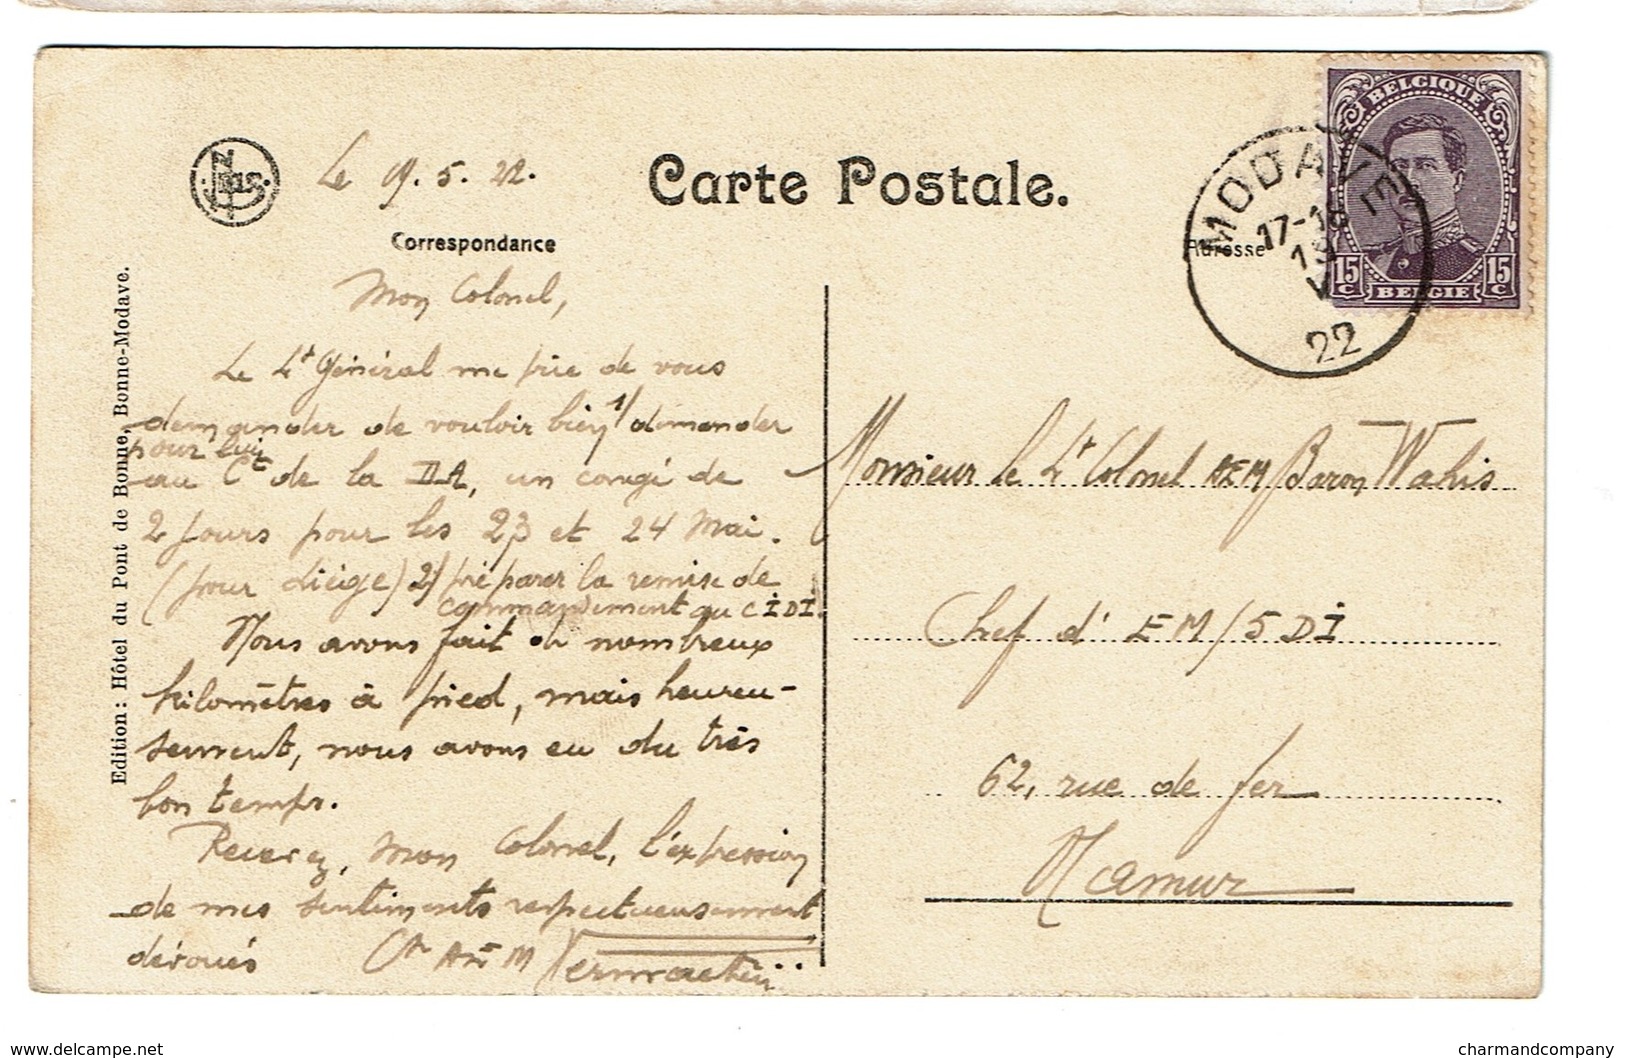 Nels
Le 19.5.22.
Carte Postale.
Correspondance
Adresse
MODAVE
17-18
19
V
22
BELGIQUE
15 C
15 C
BELGIE
Mon Colonel,
Le Lt Général me prie de vous
demander de vouloir bien 1/ demander
pour lui
au Ct de la IIDA, un congé de
2 jours pour les 23 et 24 Mai.
(pour Liège) 2/ préparer la remise de
commandement au CIDI.
Nous avons fait de nombreux
kilomètres à pied, mais heureu-
sement, nous avons eu du très
bon temps.
Recevez, mon Colonel, l'expression
de mes sentiments respectueusement
dévoués
AEM
Monsieur le Lt Colonel AEM Baron Wahis
Chef d'EM/5DI
62, rue de fer
Namur
Edition: Hôtel du Pont de Bonne, Bonne-Modave.
www.delcampe.net
charmandcompany